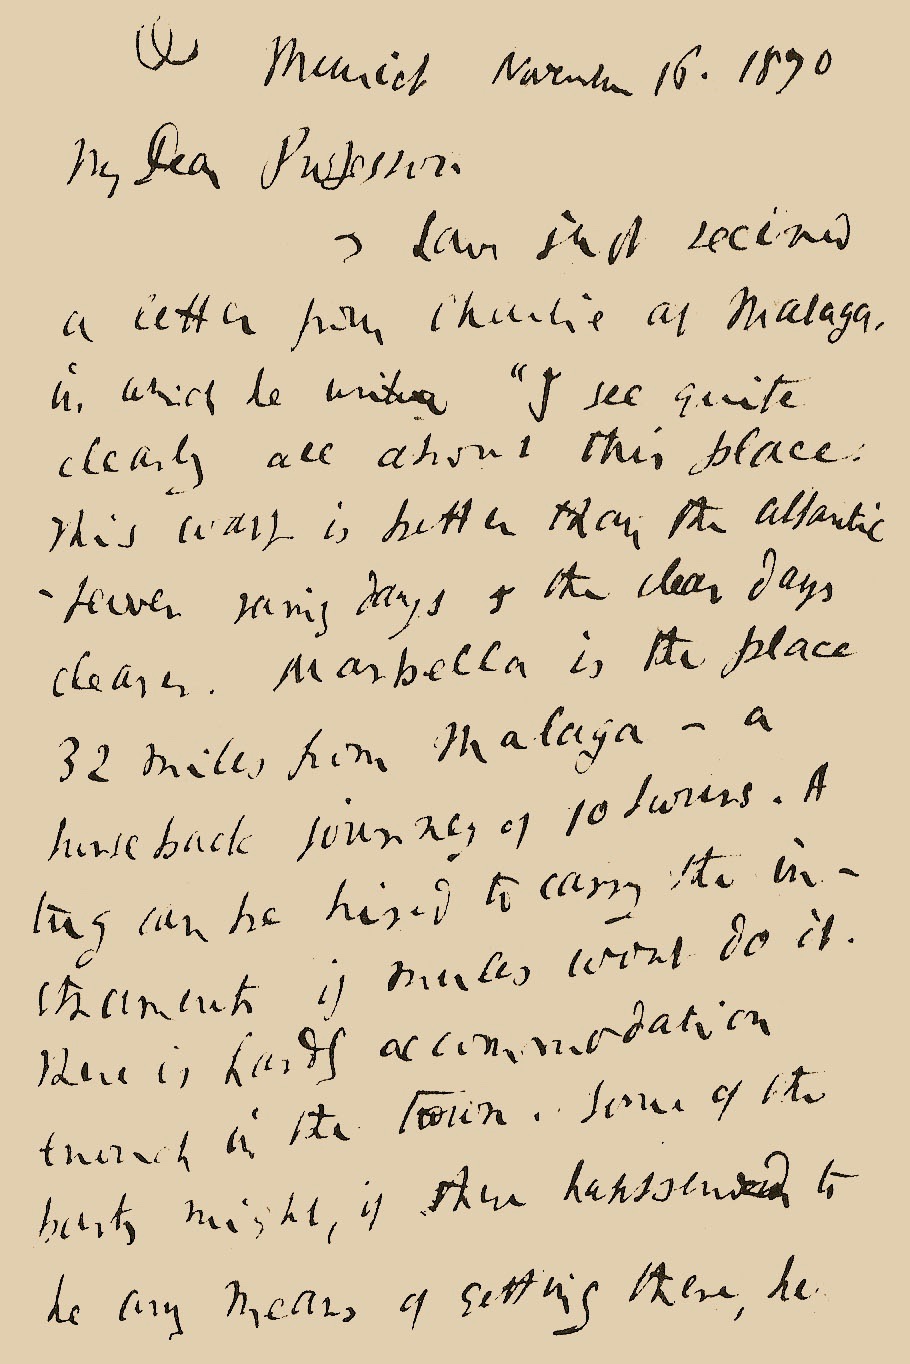 Munich November 16. 1870
My Dear Professor
I have just received
a letter from Charlie at Malaga,
in which he writes "I see quite
clearly all about this place.
This coast is better than the Atlantic
- fewer rainy days & the clear days
clearer. Marbella is the place
32 miles from Malaga - a
horseback journey of 10 hours. A
tug can be hired to carry the in-
struments if mules wont do it.
There is hardly accommodation
enough in the town. Some of the
party might, if there happened to
be any means of getting there, be